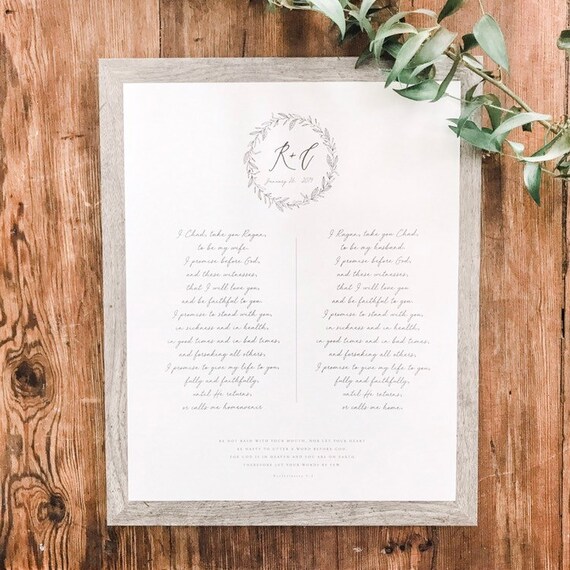 R+C
January 26 2019
I Chad, take you Ragan,
to be my wife.
I promise before God,
and these witnesses,
that I will love you
and be faithful to you.
I promise to stand with you,
in sickness and in health,
in good times and in bad times,
and forsaking all others,
I promise to give my life to you,
fully and faithfully,
until He returns,
or calls me homeward.
I Ragan, take you Chad,
to be my husband.
I promise before God,
and these witnesses,
that I will love you
and be faithful to you.
I promise to stand with you,
in sickness and in health,
in good times and in bad times,
and forsaking all others,
I promise to give my life to you,
fully and faithfully,
until He returns,
or calls me home.
BE NOT RASH WITH YOUR MOUTH, NOR LET YOUR HEART
BE HASTY TO UTTER A WORD BEFORE GOD,
FOR GOD IS IN HEAVEN AND YOU ARE ON EARTH
THEREFORE LET YOUR WORDS BE FEW